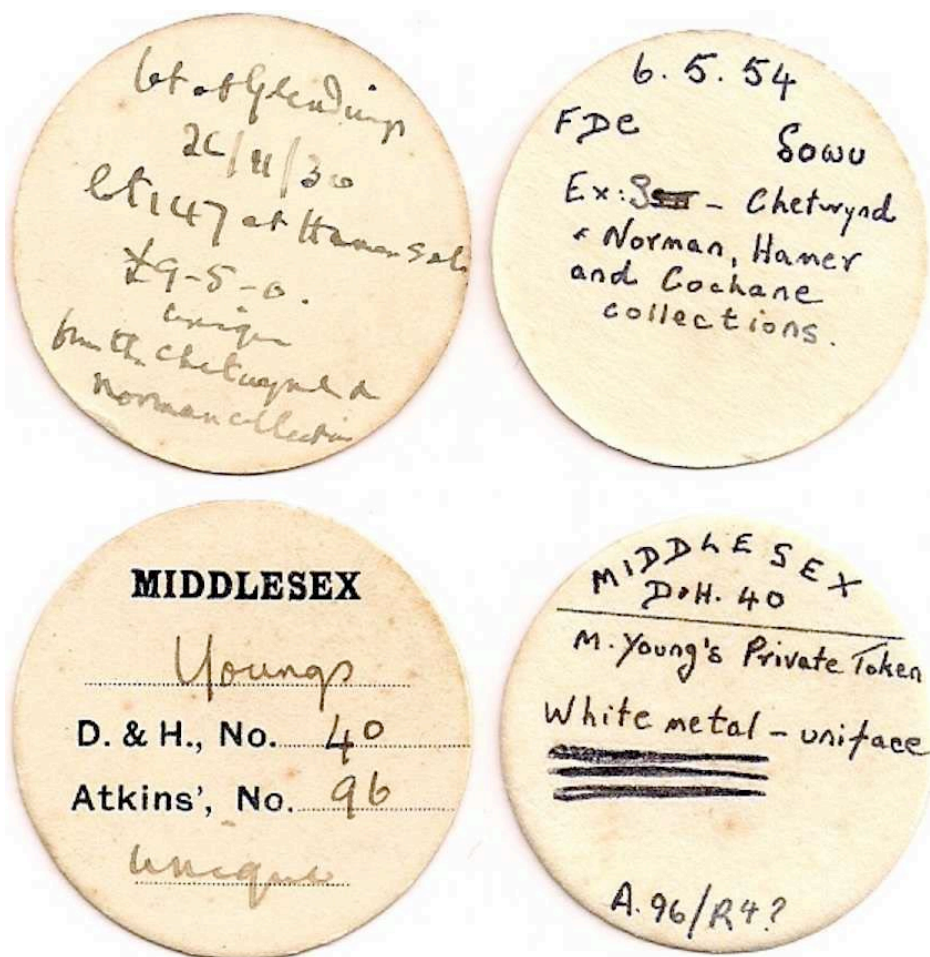 bt at Glendinings
26/11/30
Lt 147 at Hamer Sale
£9-5-0.
unique
from the Chetwynd &
Norman collection
6.5.54
FDC
sowu
Ex: – Chetwynd
& Norman, Hamer
and Cochane
collections.
MIDDLESEX
Youngs
D. & H., No. 40
Atkins', No. 96
unique
MIDDLESEX
D&H. 40
M. Young's Private Token
White metal – uniface
A.96/R4?